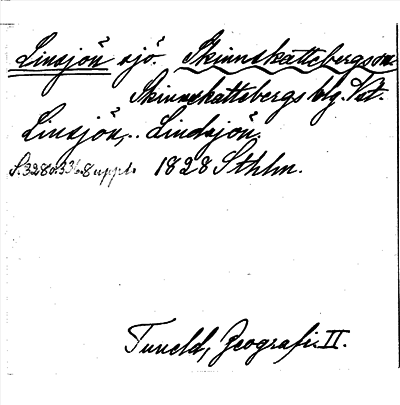 Linsjön sjö. Skinnskattebergs sn.
Skinnskattebergs blg. Vst.
Linsjön,.. Lindsjön.
S. 328 o. 336. 8 uppl. 1828 Sthlm.
Tuneld, Geografi II.